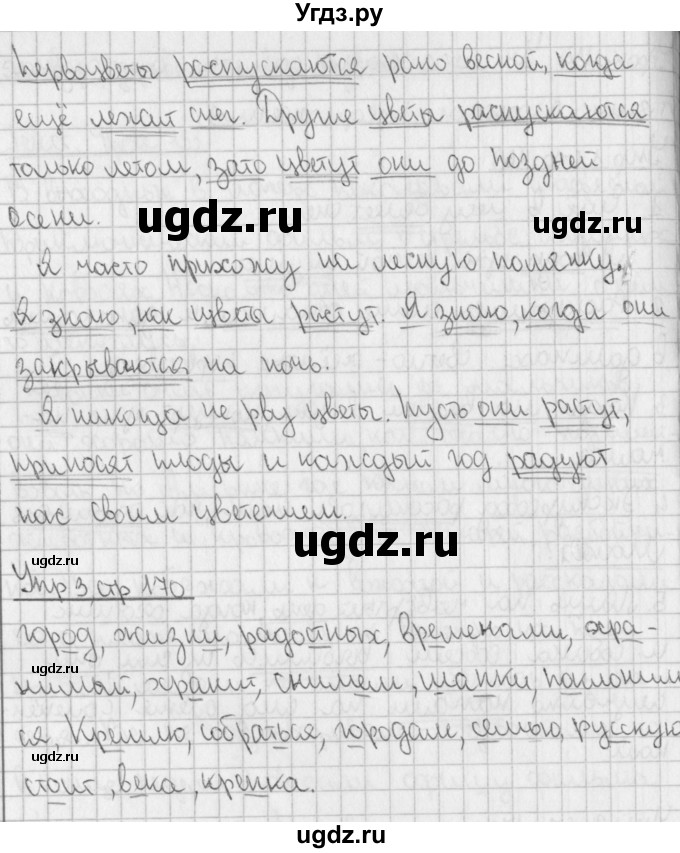 Угдз.ру
Первоцветы распускаются рано весной, когда
ещё лежит снег. Другие цветы распускаются
только летом, зато цветут они до поздней
осени.
ugdz.ru
ugdz.ru
Я часто прихожу на лесную полянку.
Я знаю, как цветы растут. Я знаю, когда они
закрываются на ночь.
Я никогда не рву цветы. Пусть они растут,
ugdz.ru
приносят плоды и каждый год радуют
нас своим цветением.
ugdz.ru
ugdz.ru
Упр 3, стр 170
город, жизни, радостных, временами, хра-
ugdz.ru
нимый, хранит, снимем, шапки, поклоним
ся, Кремлю, собраться, городам, семью, русскую
стоит, века, крепка.
ugdz.ru
ugdz.ru